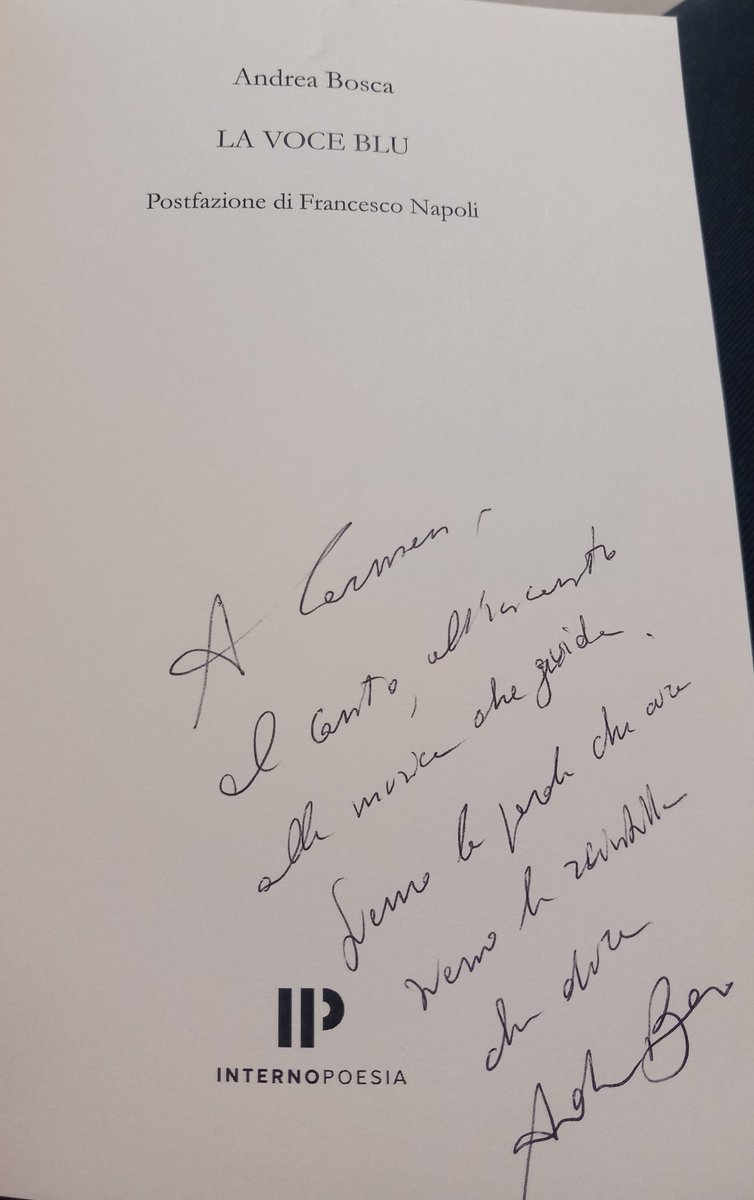 Andrea Bosca
LA VOCE BLU
Postfazione di Francesco Napoli
A Carmen,
al canto, all'incanto
alla musica che guida.
siamo le che
siamo la scintilla
che dura
Andrea Bosca
INTERNOPOESIA